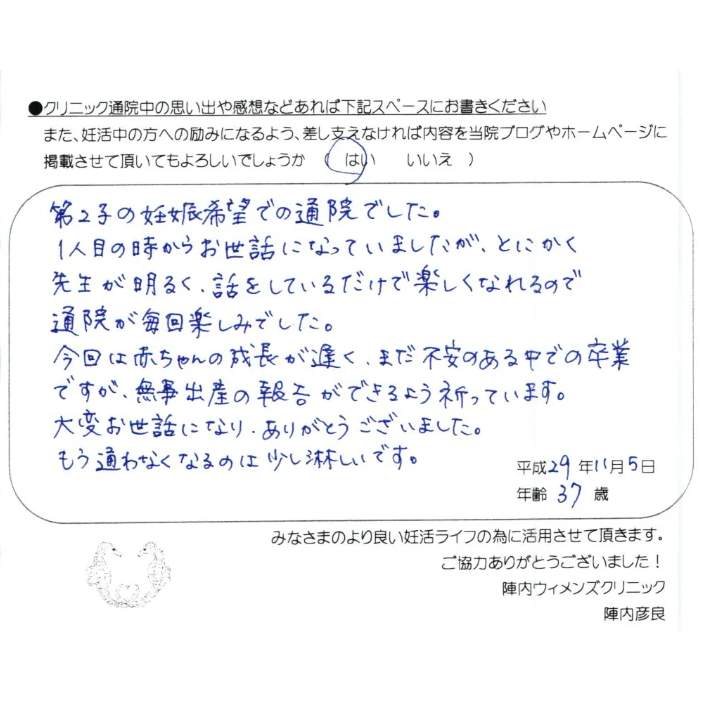 ●クリニック通院中の思い出や感想などあれば下記スペースにお書きください
また、妊活中の方への励みになるよう、差し支えなければ内容を当院ブログやホームページに
掲載させて頂いてもよろしいでしょうか ( はい いいえ )
第2子の妊娠希望での通院でした。
1人目の時からお世話になっていましたが、とにかく
先生が明るく、話をしているだけで楽しくなれるので
通院が毎回楽しみでした。
今回は赤ちゃんの成長が遅く、まだ不安のある中での卒業
ですが、無事出産の報告ができるよう祈っています。
大変お世話になり、ありがとうございました。
もう通わなくなるのは少し淋しいです。
平成29年11月5日
年齢 37 歳
みなさまのより良い妊活ライフの為に活用させて頂きます。
ご協力ありがとうございました!
陣内ウィメンズクリニック
陣内彦良